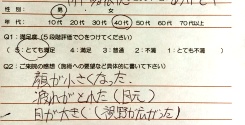 性 別： 男 ・ 女
年 齢： 10代 20代 30代 40代 50代 60代 70代以上
Q1：満足度（5段階評価で○をつけてください）
（5：とても満足 4：満足 3：普通 2：不満 1：とても不満）
Q2：ご来院の感想（施術への要望など具体的に書いて下さい）
顔が小さくなった。
疲れがとれた（目元）
目が大きく（視野が広がった）